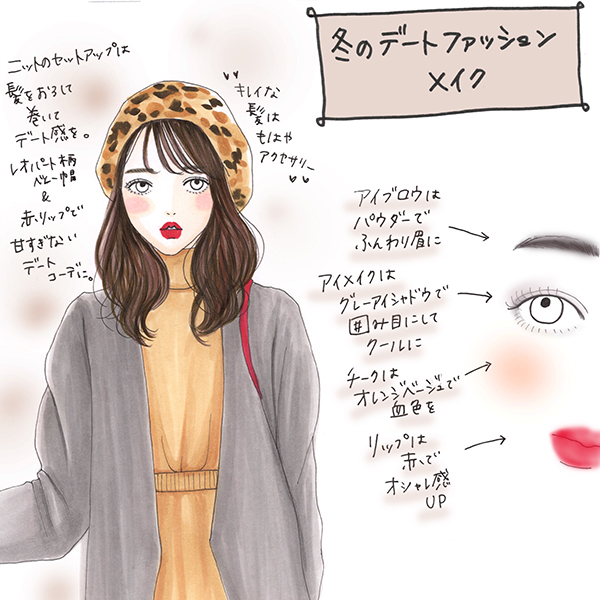 冬のデートファッション
メイク
ニットのセットアップは
髪をおろして
巻いて
デート感を。
レオパート柄
ベレー帽
&
赤リップで
甘すぎない
デート
コーデに。
キレイな
髪は
もはや
アクセサリー
アイブロウは
パウダーで
ふんわり眉に
アイメイクは
グレーアイシャドウで
囲み目にして
クールに
チークは
オレンジベージュで
血色を
リップは
赤で
オシャレ感
UP